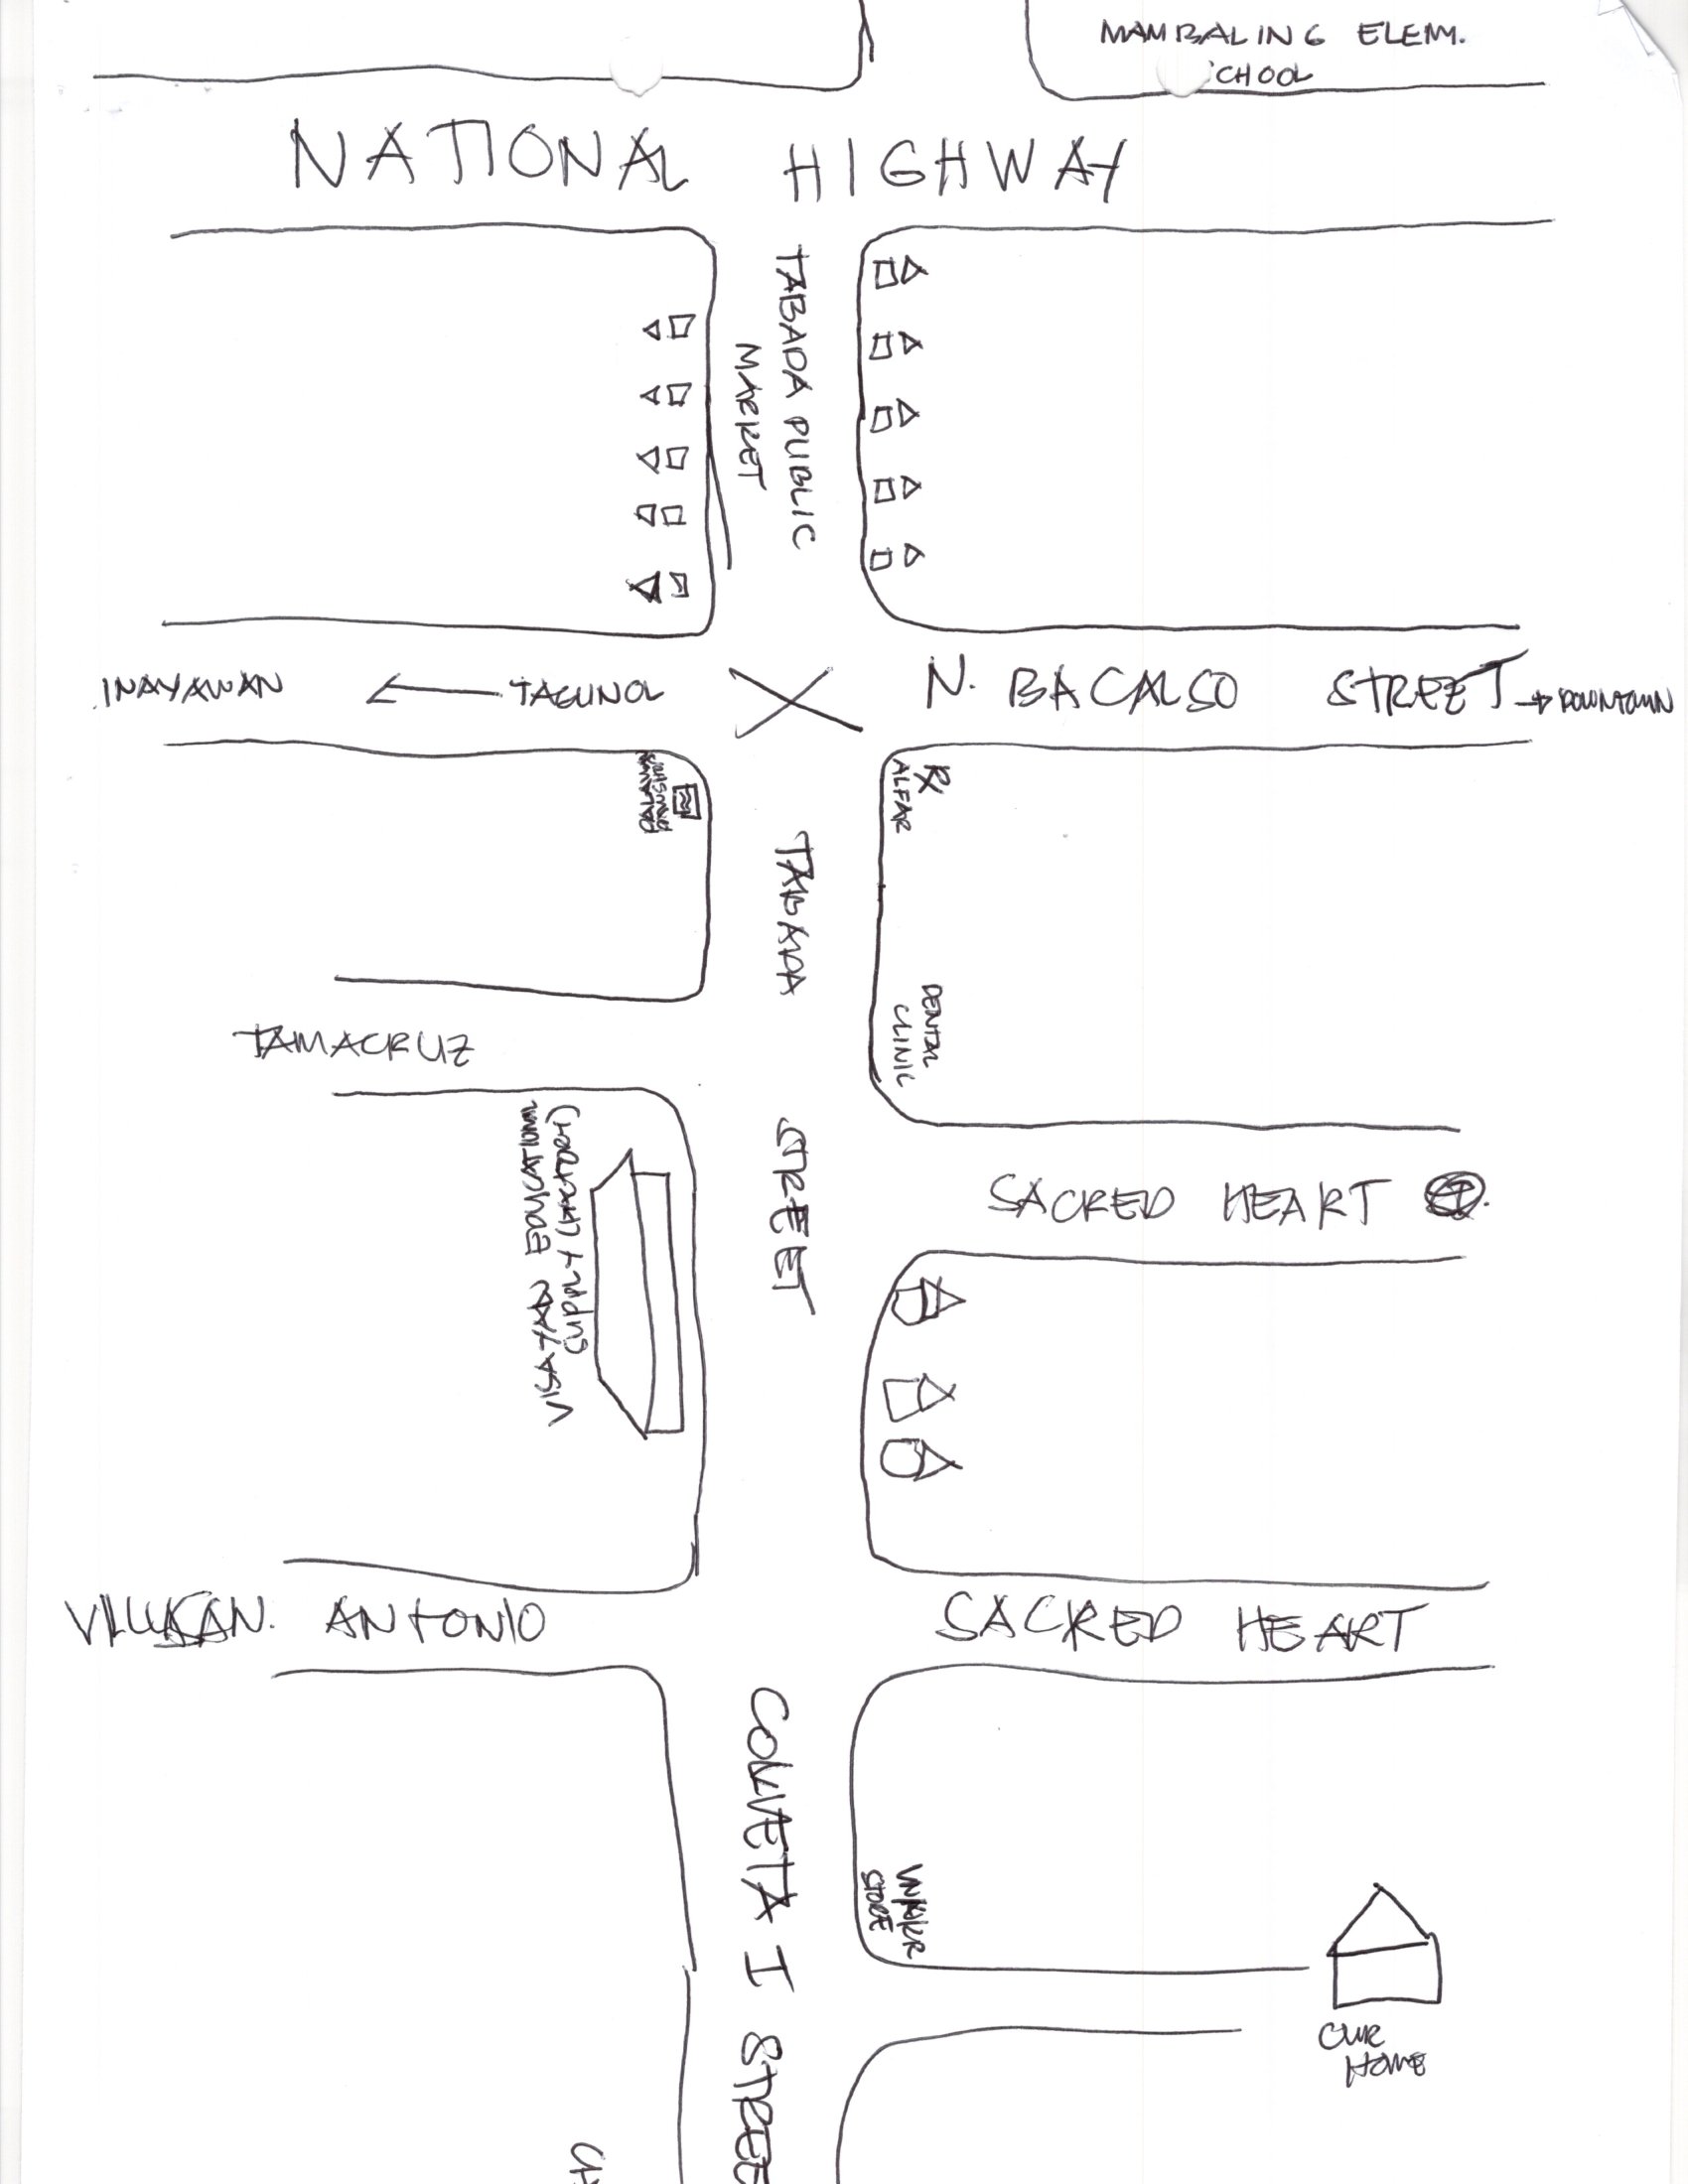 MAMBALING ELEM.
CHOOL
NATIONAL HIGHWAY
TABADA PUBLIC
MARKET
INAYAWAN ← TAGUNOL
N. BACALSO STREET → DOWNTOWN
Rx
ALFAR
TABADA STREET
DENTAL
CLINIC
TAMACRUZ
(HEALTHY CHEAP)
SUPPLY
VISAYAN EDUCATIONAL
SACRED HEART
SAN. ANTONIO
SACRED HEART
I STREE
STORE
OUR
HOME